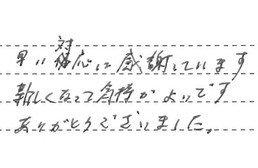 早い対応に感謝しています
新しくなって気持がよいです
ありがとうございました。